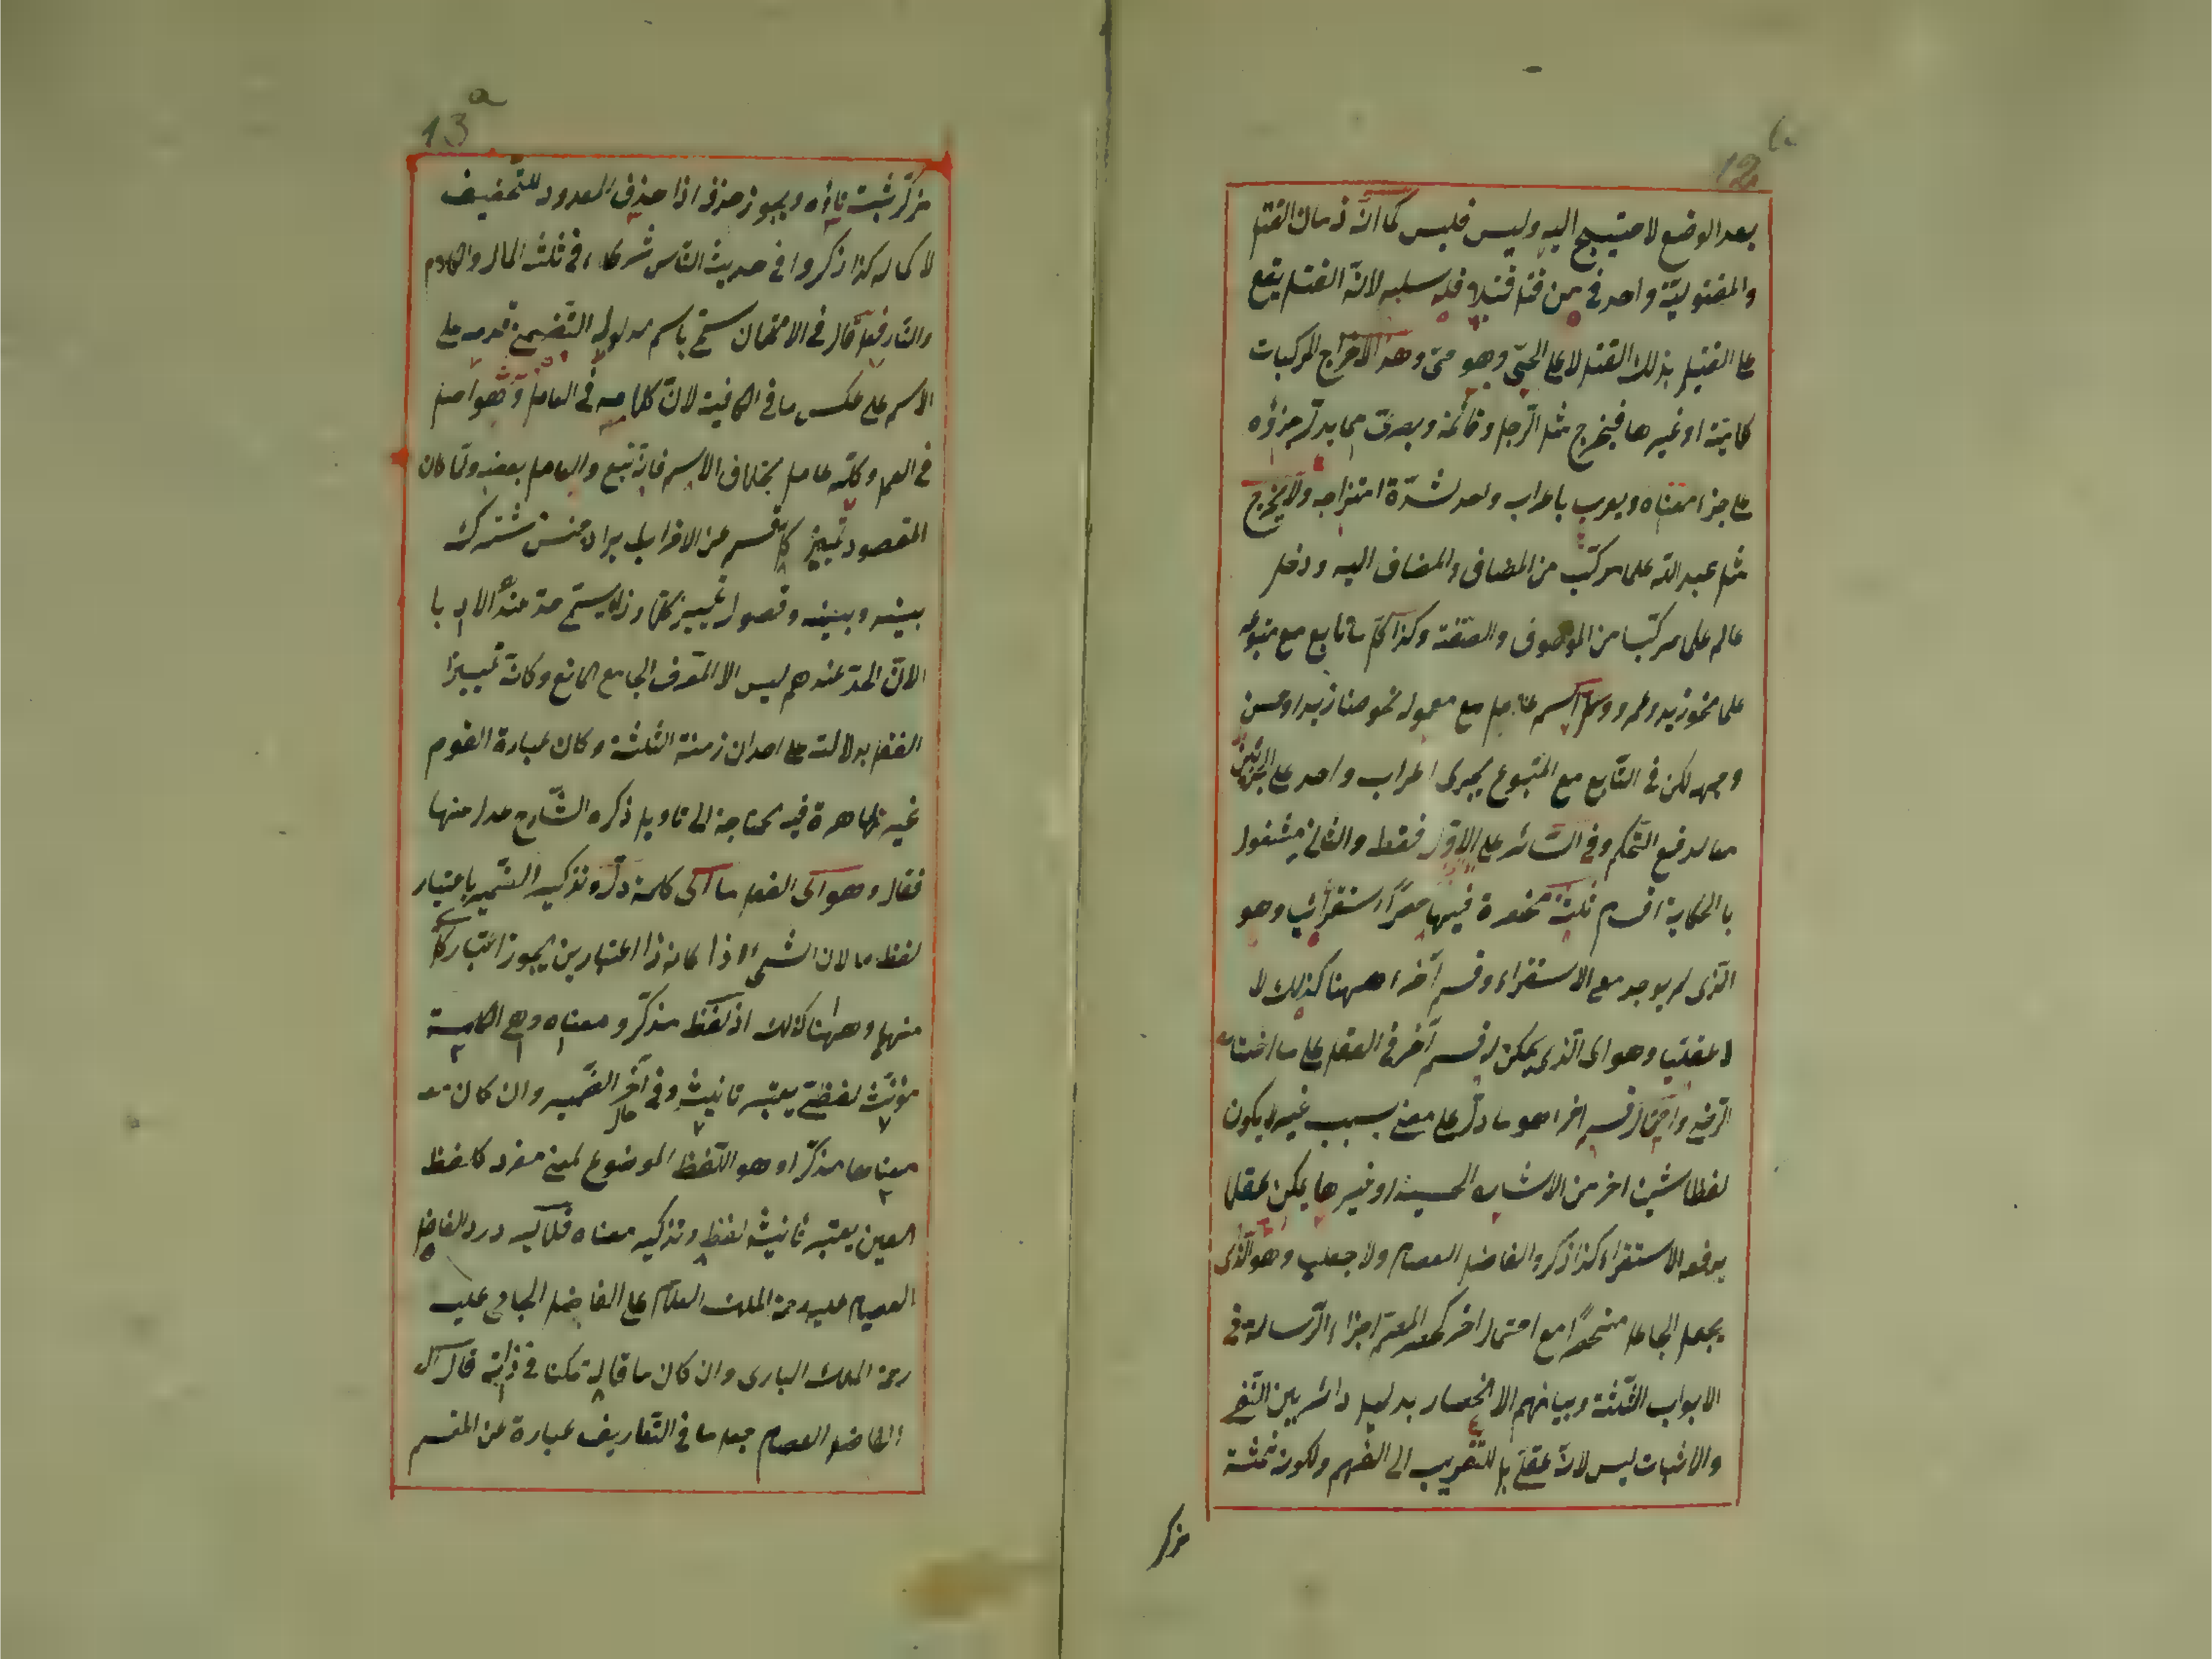 12
بعد الوضع لاحتيج اليه وليس فليس كما انّ زمان القتل
والمقتوليّة واحد في من قتل قتيلا فله سلبه لانّ القتل يقع
على القتيل بذلك القتل لا على الحىّ وهو حىّ وهذا لاخراج المركبات
كلاميّة او غيرها فيخرج مثل الرّجل وقائمة وبصرىّ مما يدلّ جزؤه
على جزء معناه ويعرب باعراب واحد لشدّة امتزاجه ولا يخرج
مثل عبد اللّه علما مركّب من المضاف والمضاف اليه ودخل
عالم على مركّبا من الموصوف والصّفة وكذا كلّ تابع مع متبوعه
علما نحو زيد وعمرو اسم عامل مع معموله نحو ضارب زيدا وحسن
وجهه لكن في التّابع مع المتبوع يجرى اعراب واحد على الجزئين
معا لدفع التّحكم وفي السّائر على الاوّل فقط والثاني مشغول
بالحكاية اقسام ثلثة منحصرة فيها حصرًا استقرائيا وهو
الّذى لم يوجد مع الاستقراء وقسم آخر ههنا كذلك لا
لا عقليا وهو اى الّذى يمكن له قسم آخر في العقل على ما اختاره
الرّضى قسم اخر اهو ما دلّ على معنى بسبب غيره لا يكون
لفظا شيئا اخر من الاشياء الحسية او غيرها يمكن عقلا
يدفعه الاستقراء كذا ذكر والفاضل العصام ولا جعليا وهو الّذى
يجعل الجاعل منحصرًا مع احتمال اخر كحصر المصنّ اجزاء الرّسالة في
الابواب الثّلثة وبيانهم الانحصار بدليل دائر بين النّفى
والاثبات ليس لانّه عقلىّ بل للتّقريب الى الفهم ولكون ثلثة
مذكر
13 a
مذكّر ثبت تاؤه ويجوز حذفه اذا حذف المعدود للتّخفيف
لا كماله كذا ذكروا في حديث النّاس شركاء في ثلث المال والكلاء
والنار فعل قال في الامتحان سمّى باسم مدلوله التّضمنىّ قدمه على
الاسم على عكس ما في الكافية لانّ كلامه في العامل وهو اصل
في العمل وكلّه عامل بخلاف الاسم فانّه تبع والعامل بعضه ولمّا كان
المقصود تمييز كلّ قسم عن الاخر ايراد جنس مشترك
بينه وبينه وفصول تمييز كلّا وذا يسمّى حدّا عند الادبا
لانّ الحدّ عندهم ليس الا المعرّف الجامع المانع وكان تمييز
الفعل بدلالته على احد الازمنة الثلثة وكان عبارة القوم
غير ظاهرة فيه محتاجة الى تاويل ذكره الشّارح عدل منها
فقال وهو اى الفعل ما اى كلمة دلّ وتذكير الضّمير باعتبار
لفظ ما لان الشىء اذا كان ذا اعتبارين يجوز اعتبار كلّ
منهما وههنا كذلك اذ لفظ مذكّر ومعناه وهى الكلمة
مؤنّث لفظىّ يعتبر تانيثه وفي آخر الضّمير وان كان
معناها مذكّرا وهو اللّفظ الموضوع لمعنى مفرد كلفظ
العين يعتبر تانيث لفظه وتذكير معناه فلا يرد رد الفاضل
العصام عليه رحمة الملك العلّام على الفاضل الجامى عليه
رحمة الملك البارى وان كان ما قاله ممكنا في ذاته قال
الفاضل العصام جعل ما في التّعاريف عبارة عن المقسم